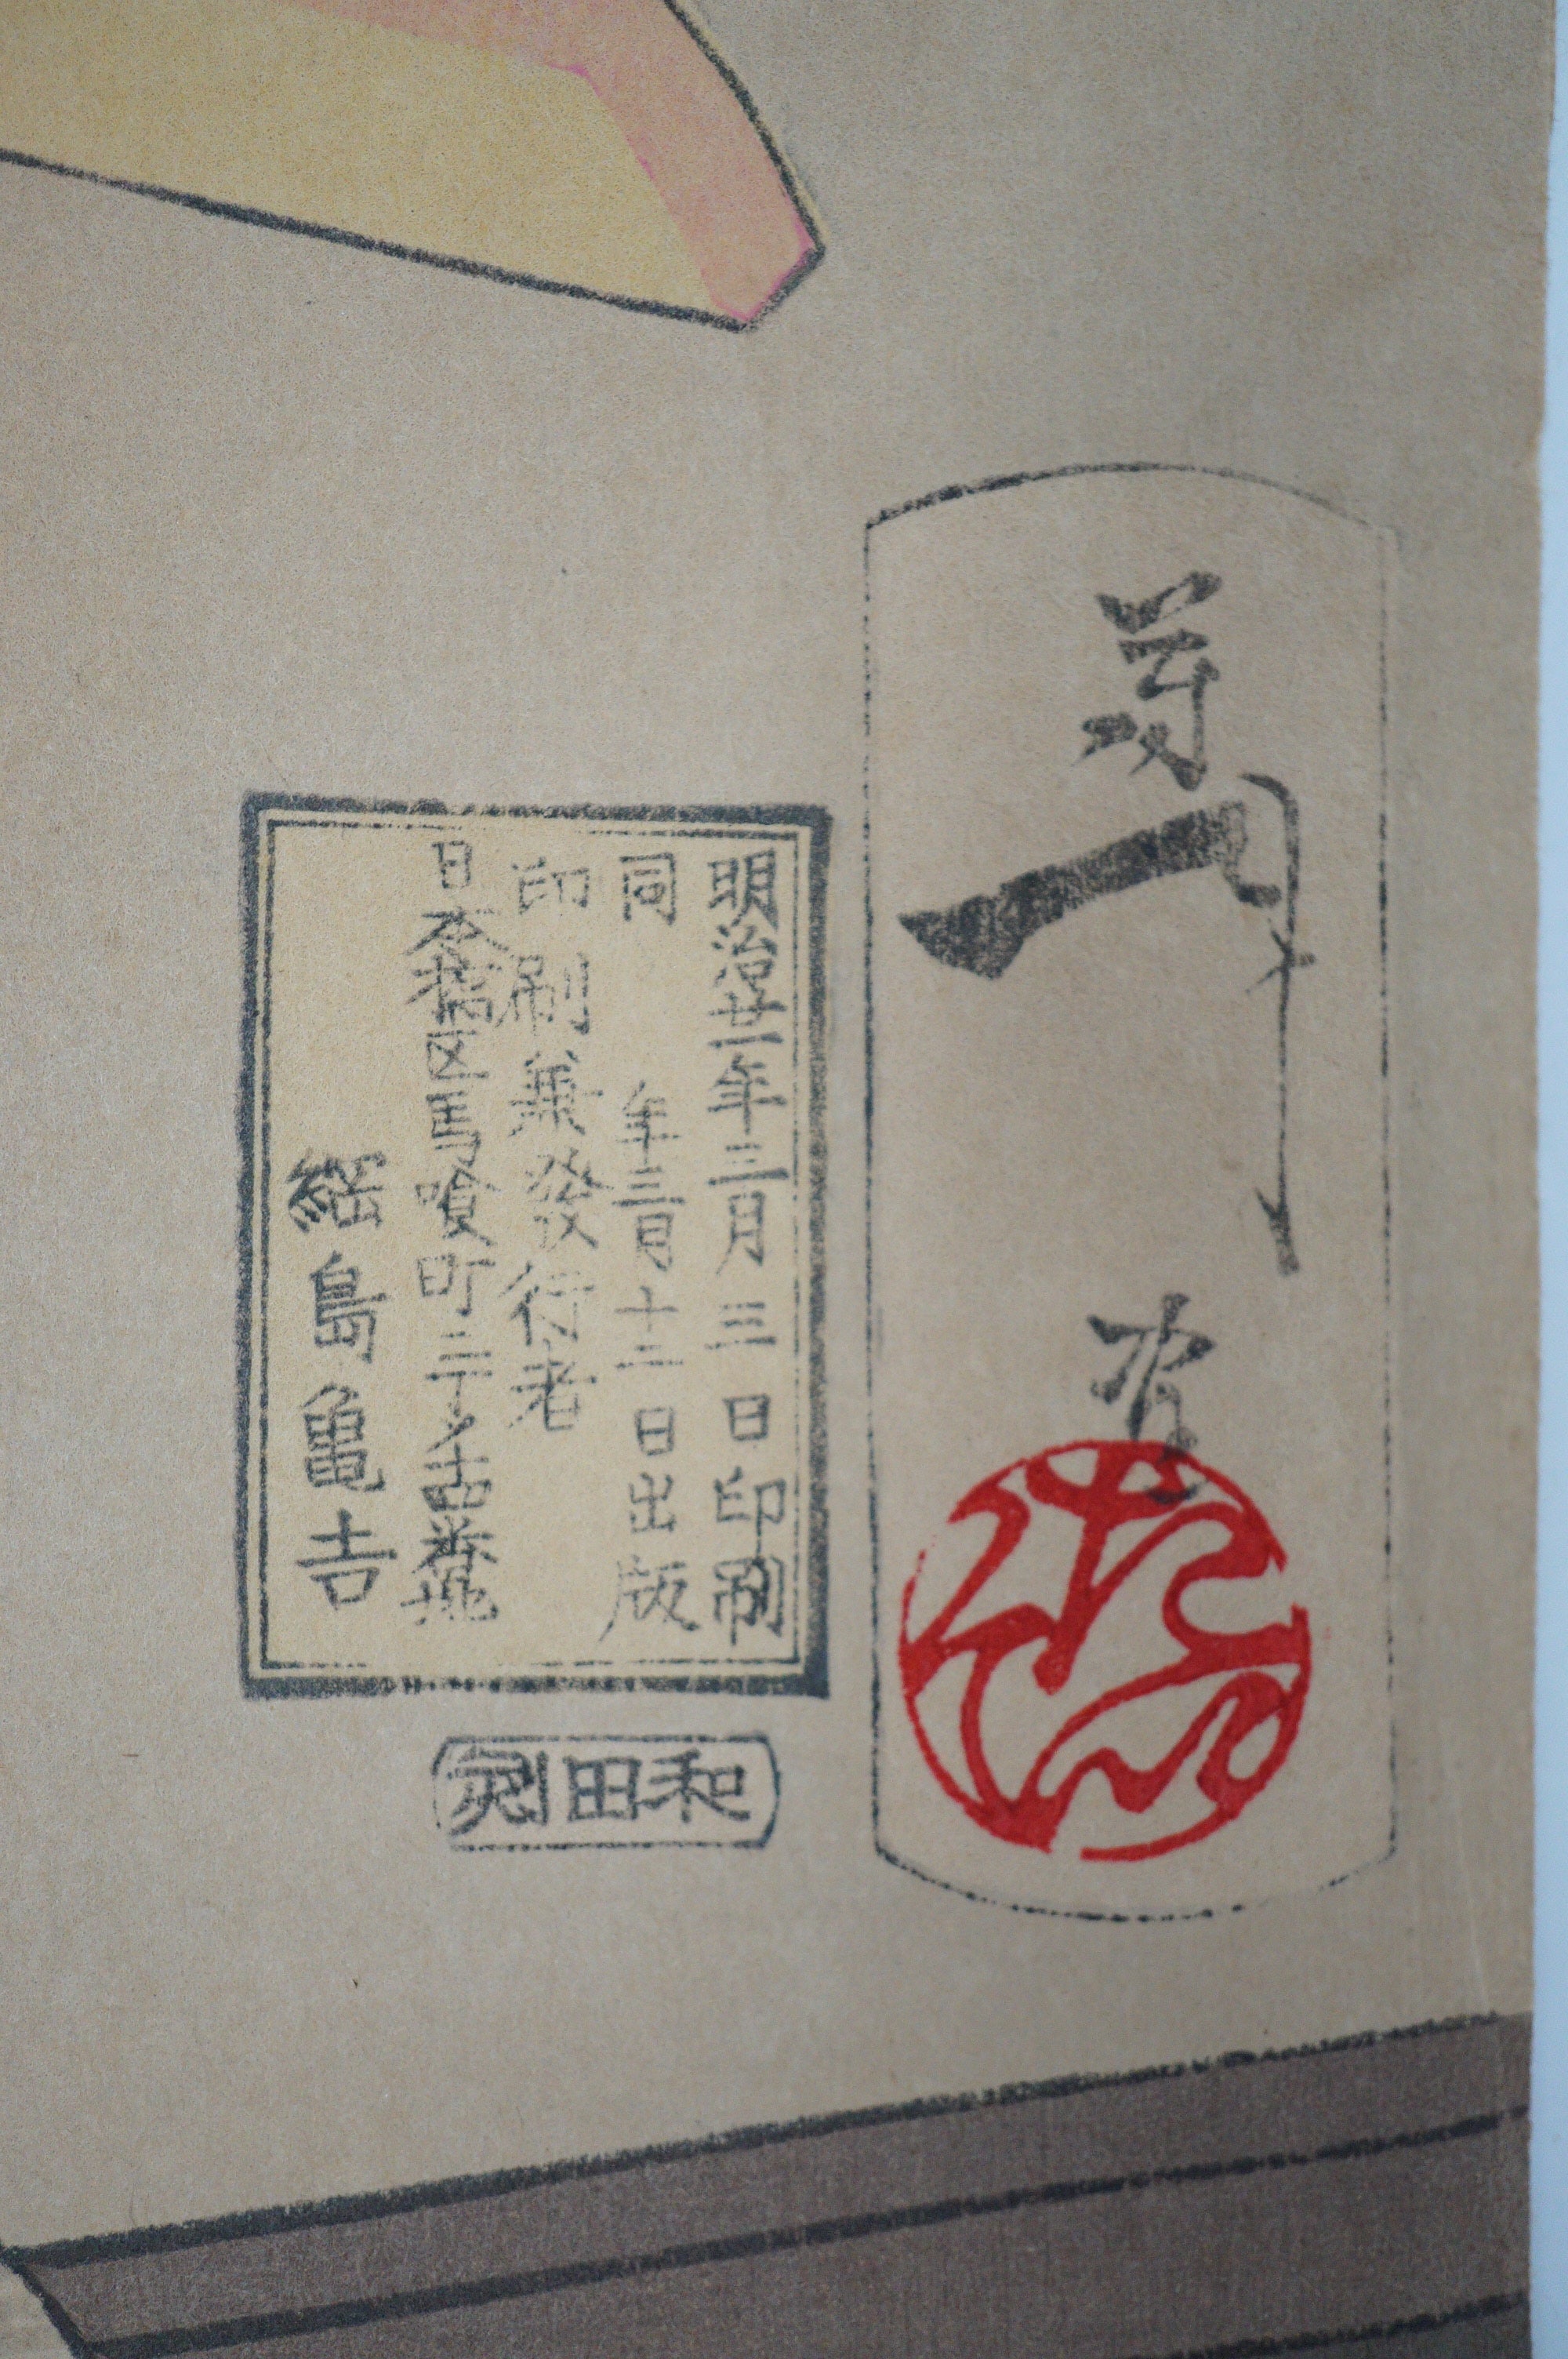 芳年画
明治廿一年三月三日印刷
同年三月十二日出版
印刷兼發行者
日本橋区馬喰町二丁メ十四番地
綱島亀吉
和田刻